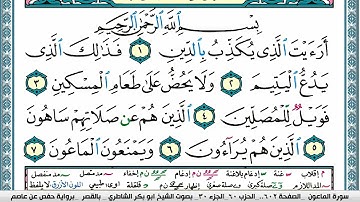 بِسْمِ ٱللَّهِ ٱلرَّحْمَٰنِ ٱلرَّحِيمِ
أَرَءَيْتَ ٱلَّذِى يُكَذِّبُ بِٱلدِّينِ ١ فَذَٰلِكَ ٱلَّذِى
يَدُعُّ ٱلْيَتِيمَ ٢ وَلَا يَحُضُّ عَلَىٰ طَعَامِ ٱلْمِسْكِينِ ٣
فَوَيْلٌ لِّلْمُصَلِّينَ ٤ ٱلَّذِينَ هُمْ عَن صَلَاتِهِمْ سَاهُونَ
٥ ٱلَّذِينَ هُمْ يُرَآءُونَ ٦ وَيَمْنَعُونَ ٱلْمَاعُونَ ٧
سورة الماعون الصفحة ٦٠٢ الجزء ٣٠ بصوت الشيخ ابو بكر الشاطري بالقصر برواية حفص عن عاصم